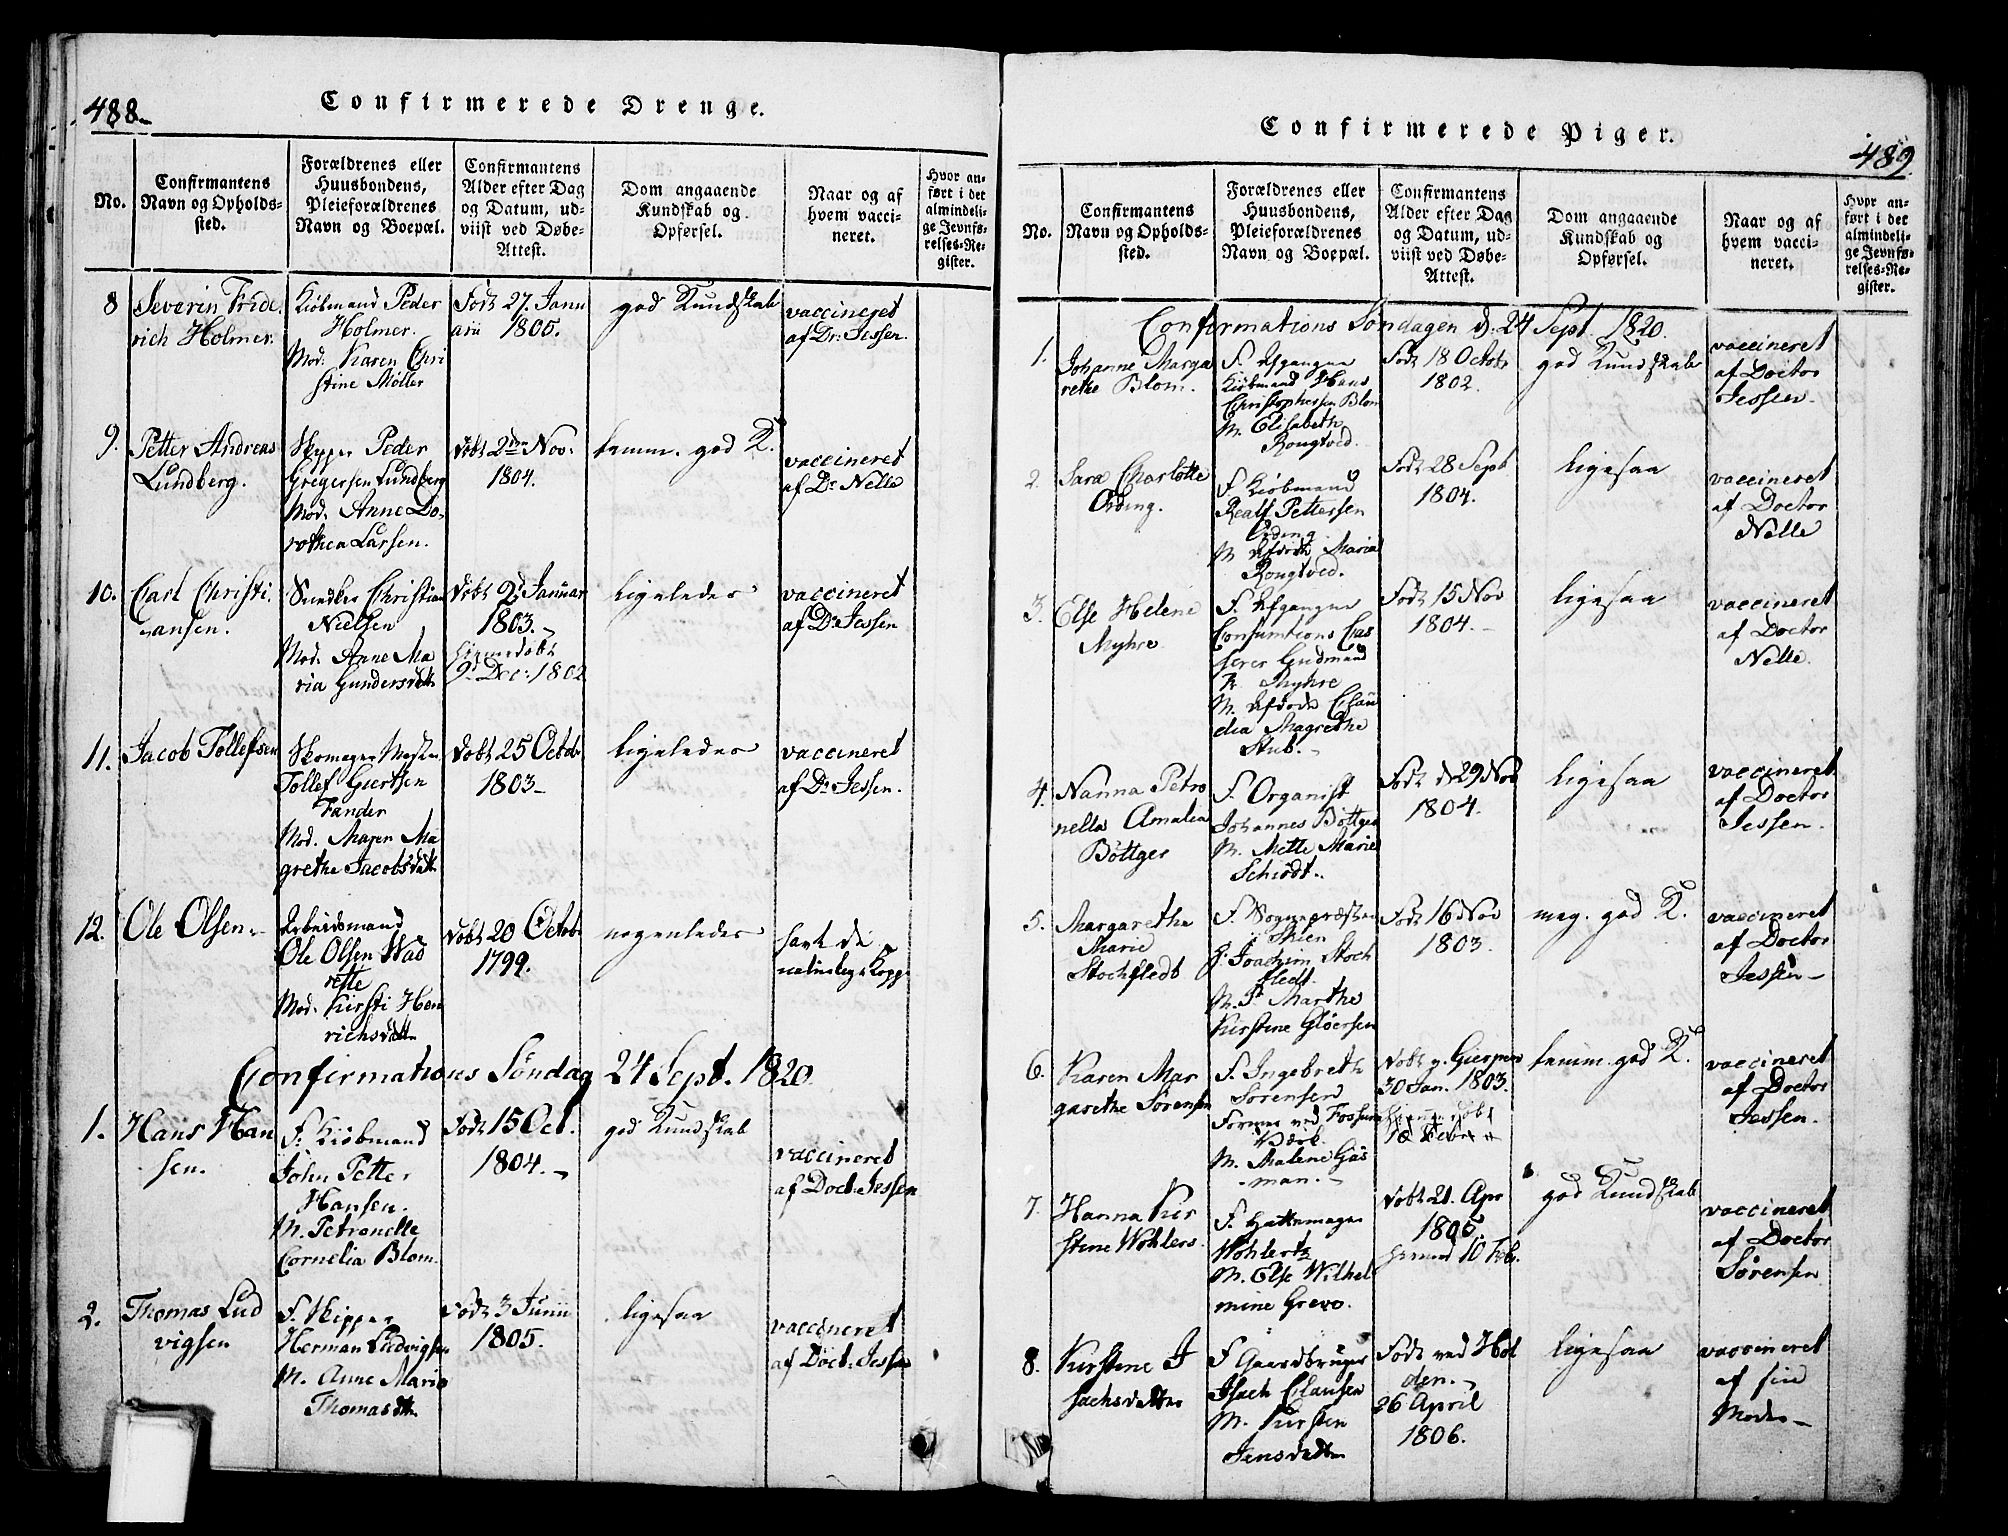 488.
Confirmerede Drenge.
No.
Confirmantens
Navn og Opholds-
sted.
Forældrenes eller
Huusbondens,
Pleieforældrenes
Navn og Boepæl.
Confirmantens
Alder efter Dag
og Datum, ud-
viist ved Døbe-
Attest.
Dom angaaende
Kundskab og
Opførsel.
Naar og af
hvem vacci-
neret.
Hvor an-
ført i det
almindeli-
ge Jevnfø-
relses-Re-
gister.
8
Severin Fride
rich Holmer.
Kiøbmand Peder
Holmer.
Mod: Karen Chri
stine Møller
Født 27. Janu
arii 1805.
god Kundskab
vaccineret
af Dr. Jessen.
9.
Petter Andreas
Lundberg.
Skipper Peder
Gregersen Lundberg
Mod. Anne Do-
rothea Larsen.
Døbt 2den Nov:
1804.
temm. god K.
vaccineret
af Dr Nelle
10.
Carl Christi
ansen.
Snedker Christian
Nielsen
Mod. Anne Ma
ria Gundersdatt
Døbt 2d Januar
1803.
hiemmedøbt
9d Dec: 1802
ligeledes
vaccineret
af Dr Jessen
11.
Jacob Tollefsen
Skomager Mester
Tollef Giertsen
Mod. Maren Ma
grethe Jacobsdatt
Døbt 25 Octob
1803
ligeledes
vaccineret
af Dr Jessen.
12.
Ole Olsen
Arbeidsmand
Ole Olsen Wad
rette
Mod. Kirsti Hen
richsdatt
Døbt 20 Octob
1799.
nogenledes
havt de
naturlige Kopp
Confirmations Søndag 24 Sept. 1820
1.
Hans Han
sen.
F. Kiøbmand
John Petter
Hansen.
M. Petronelle
Cornelia Blom.
Født 15 Oct.
1804.
god Kundskab
vaccineret
af Doct: Jessen
2.
Thomas Lud
vigsen
F. Skipper
Herman Ludvigsen
M. Anne Maria
Thomasdtt
Født 3 Junii
1805.
ligesaa
vaccineret
af Doct: Jessen
489.
Confirmerede Piger.
No.
Confirmantens
Navn og Opholds-
sted.
Forældrenes eller
Huusbondens,
Pleieforældrenes
Navn og Boepæl.
Confirmantens
Alder efter Dag
og Datum, ud-
viist ved Døbe-
Attest.
Dom angaaende
Kundskab og
Opførsel.
Naar og af
hvem vacci-
neret.
Hvor an-
ført i det
almindeli-
ge Jevnfø-
relses-Re-
gister.
Confirmations Søndagen d. 24 Sept. 1820.
1.
Johanne Marga
rethe Blom.
F. Afgangne
Kiøbmand Hans
Christophersen Blom
M. Elisabeth
Rongtved.
Født 18 Octob
1802.
god Kundskab
vaccineret
af Doctor
Jessen.
2.
Sara Charlotte
Ording.
F. Kiøbmand
Realf Pettersen
Ording
M. Afdøde Maria
Rongtved.
Født 28 Sept
1804.
ligesaa
vaccineret
af Doctor
Nelle
3.
Else Helene
Myhre
F. Afgangne
Consumtions Cas
serer Gudmand
Myhre
M. Afdøde Clau
dia Magrethe
Stub.
Født 15 Nov
1804.
ligesaa
vaccineret
af Doctor
Nelle.
4.
Nanna Petro
nella Amalia
Bøttger
F. Organist
Johannes Bøttger
M. Mette Marie
Schiødt.
Født d 29 Nov
1804.
ligesaa
vaccineret
af Doctor
Jessen.
5.
Margaretha
Marie
Stochfledt
F. Sognepræsten
Skien
Joachim Stoch
fledt.
M. Fr Marthe
Kirstine Gløersen
Født 16 Nov
1803.
meg. god K.
vaccineret
af Doctor
Jessen
6.
Karen Mar
garethe Sørensen
F. Ingebreth
Sørensen
Former ved Fossum
Værk.
M. Malene Gas
man.
Døbt p. Gierpen
30 Jan. 1803.
temm. god K.
vaccineret
af Doctor
Jessen.
7.
Hanna Kir
stine Wohlers.
F. Hattemager
Wohlertz
M. Else Wilhel
mine Greve.
Døbt 21. Apr
1805
10 Feb.
god Kundskab
vaccineret
af Doctor
Sørensen
8.
Kirstine I
sachsdatter
F Gaardbruger
Isach Clausen
M. Kirsten
Jensdatter
Født ved Hol
den.
26 April
1806.
ligesaa
vaccineret
af sin
Moder